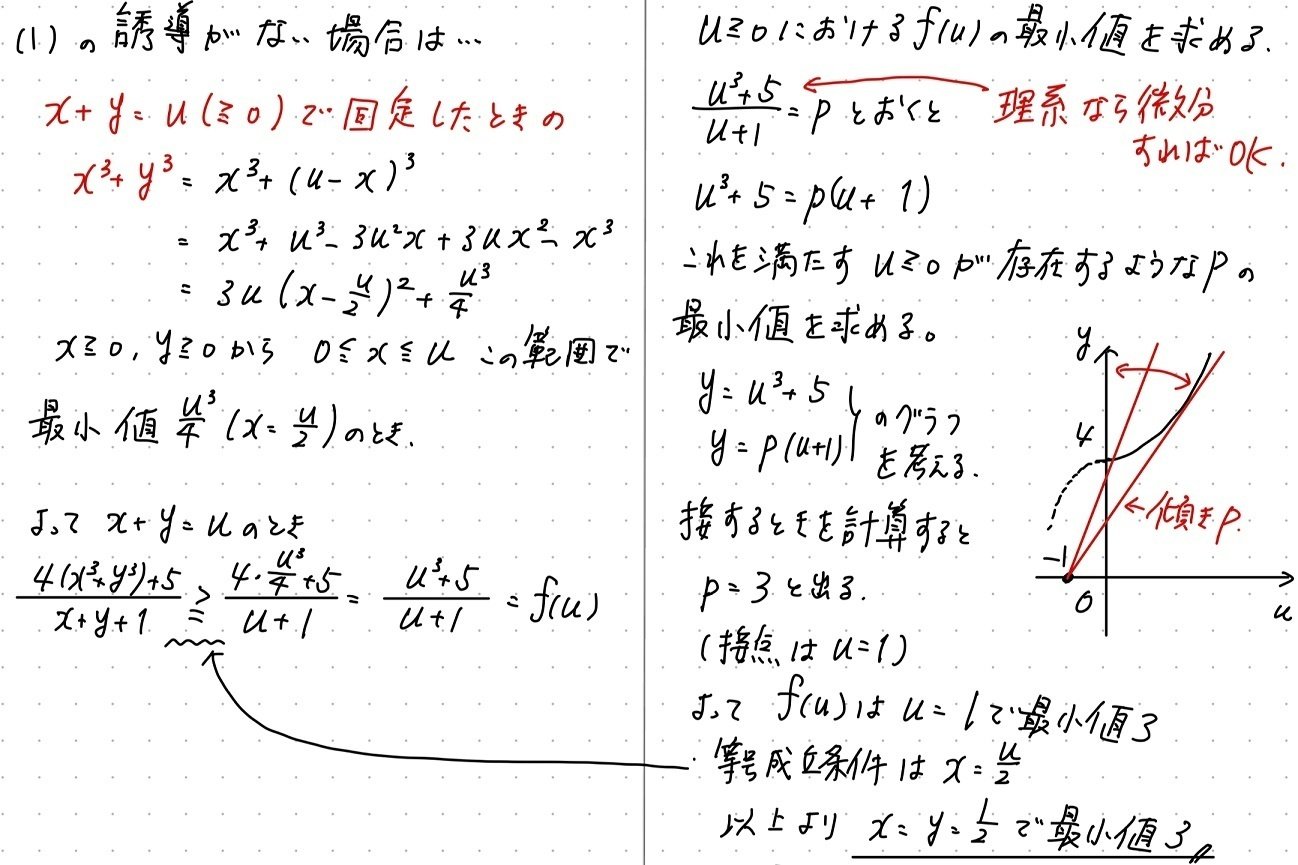 (1) の誘導がない場合は…
x + y = u (≧0) で固定したときの
x³ + y³ = x³ + (u - x)³
= x³ + u³ - 3u²x + 3ux² - x³
= 3u (x - u/2)² + u³/4
x≧0, y≧0から 0≦x≦u この範囲で
最小値 u³/4 (x = u/2) のとき.
よって x + y = u のとき
4(x³+y³)+5 / x+y+1 ≧ 4・u³/4+5 / u+1 = u³+5 / u+1 = f(u)
u≧0における f(u) の最小値を求める.
u³+5 / u+1 = p とおくと
理系なら微分
すればOK.
u³ + 5 = p(u + 1)
これを満たす u≧0 が存在するような p の
最小値を求める。
y = u³ + 5
y = p(u+1)
のグラフ
を考える.
接するときを計算すると
p = 3 と出る.
(接点は u = 1)
y
4
←傾き p
-1
0
u
よって f(u) は u = 1 で最小値 3
等号成立条件は x = u/2
以上より x = y = 1/2 で最小値 3